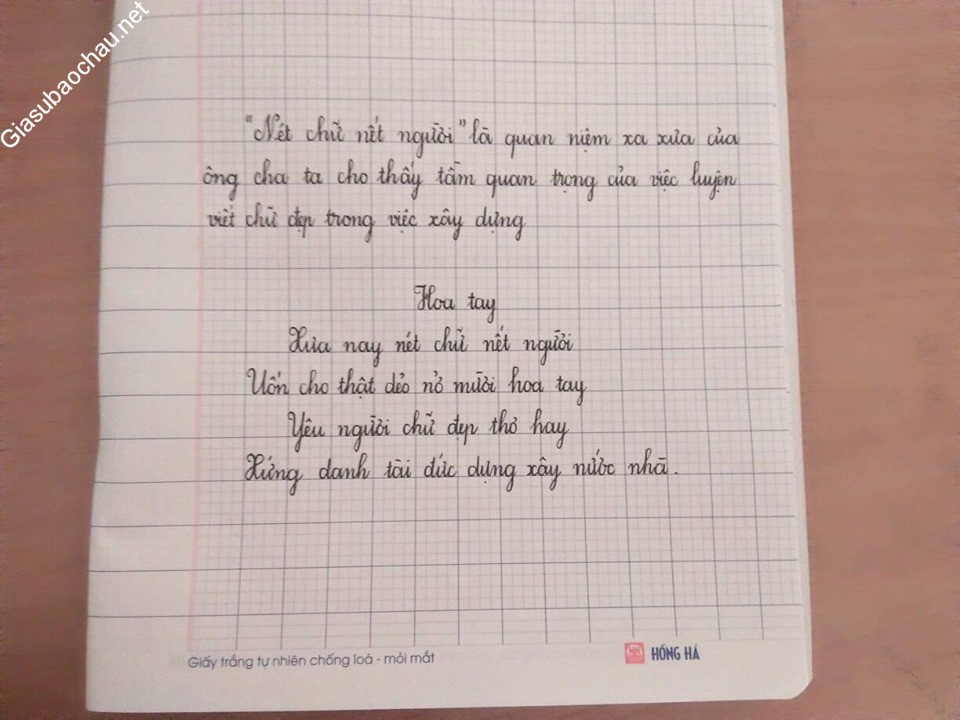 Giasubaochau.net
"Nét chữ nết người" là quan niệm xa xưa của
ông cha ta cho thấy tầm quan trọng của việc luyện
viết chữ đẹp trong việc xây dựng
Hoa tay
Xưa nay nét chữ nết người
Uốn cho thật dẻo nở mười hoa tay
Yêu người chữ đẹp thơ hay
Xứng danh tài đức dựng xây nước nhà.
Giấy trắng tự nhiên chống loá - mỏi mắt
HH HỒNG HÀ